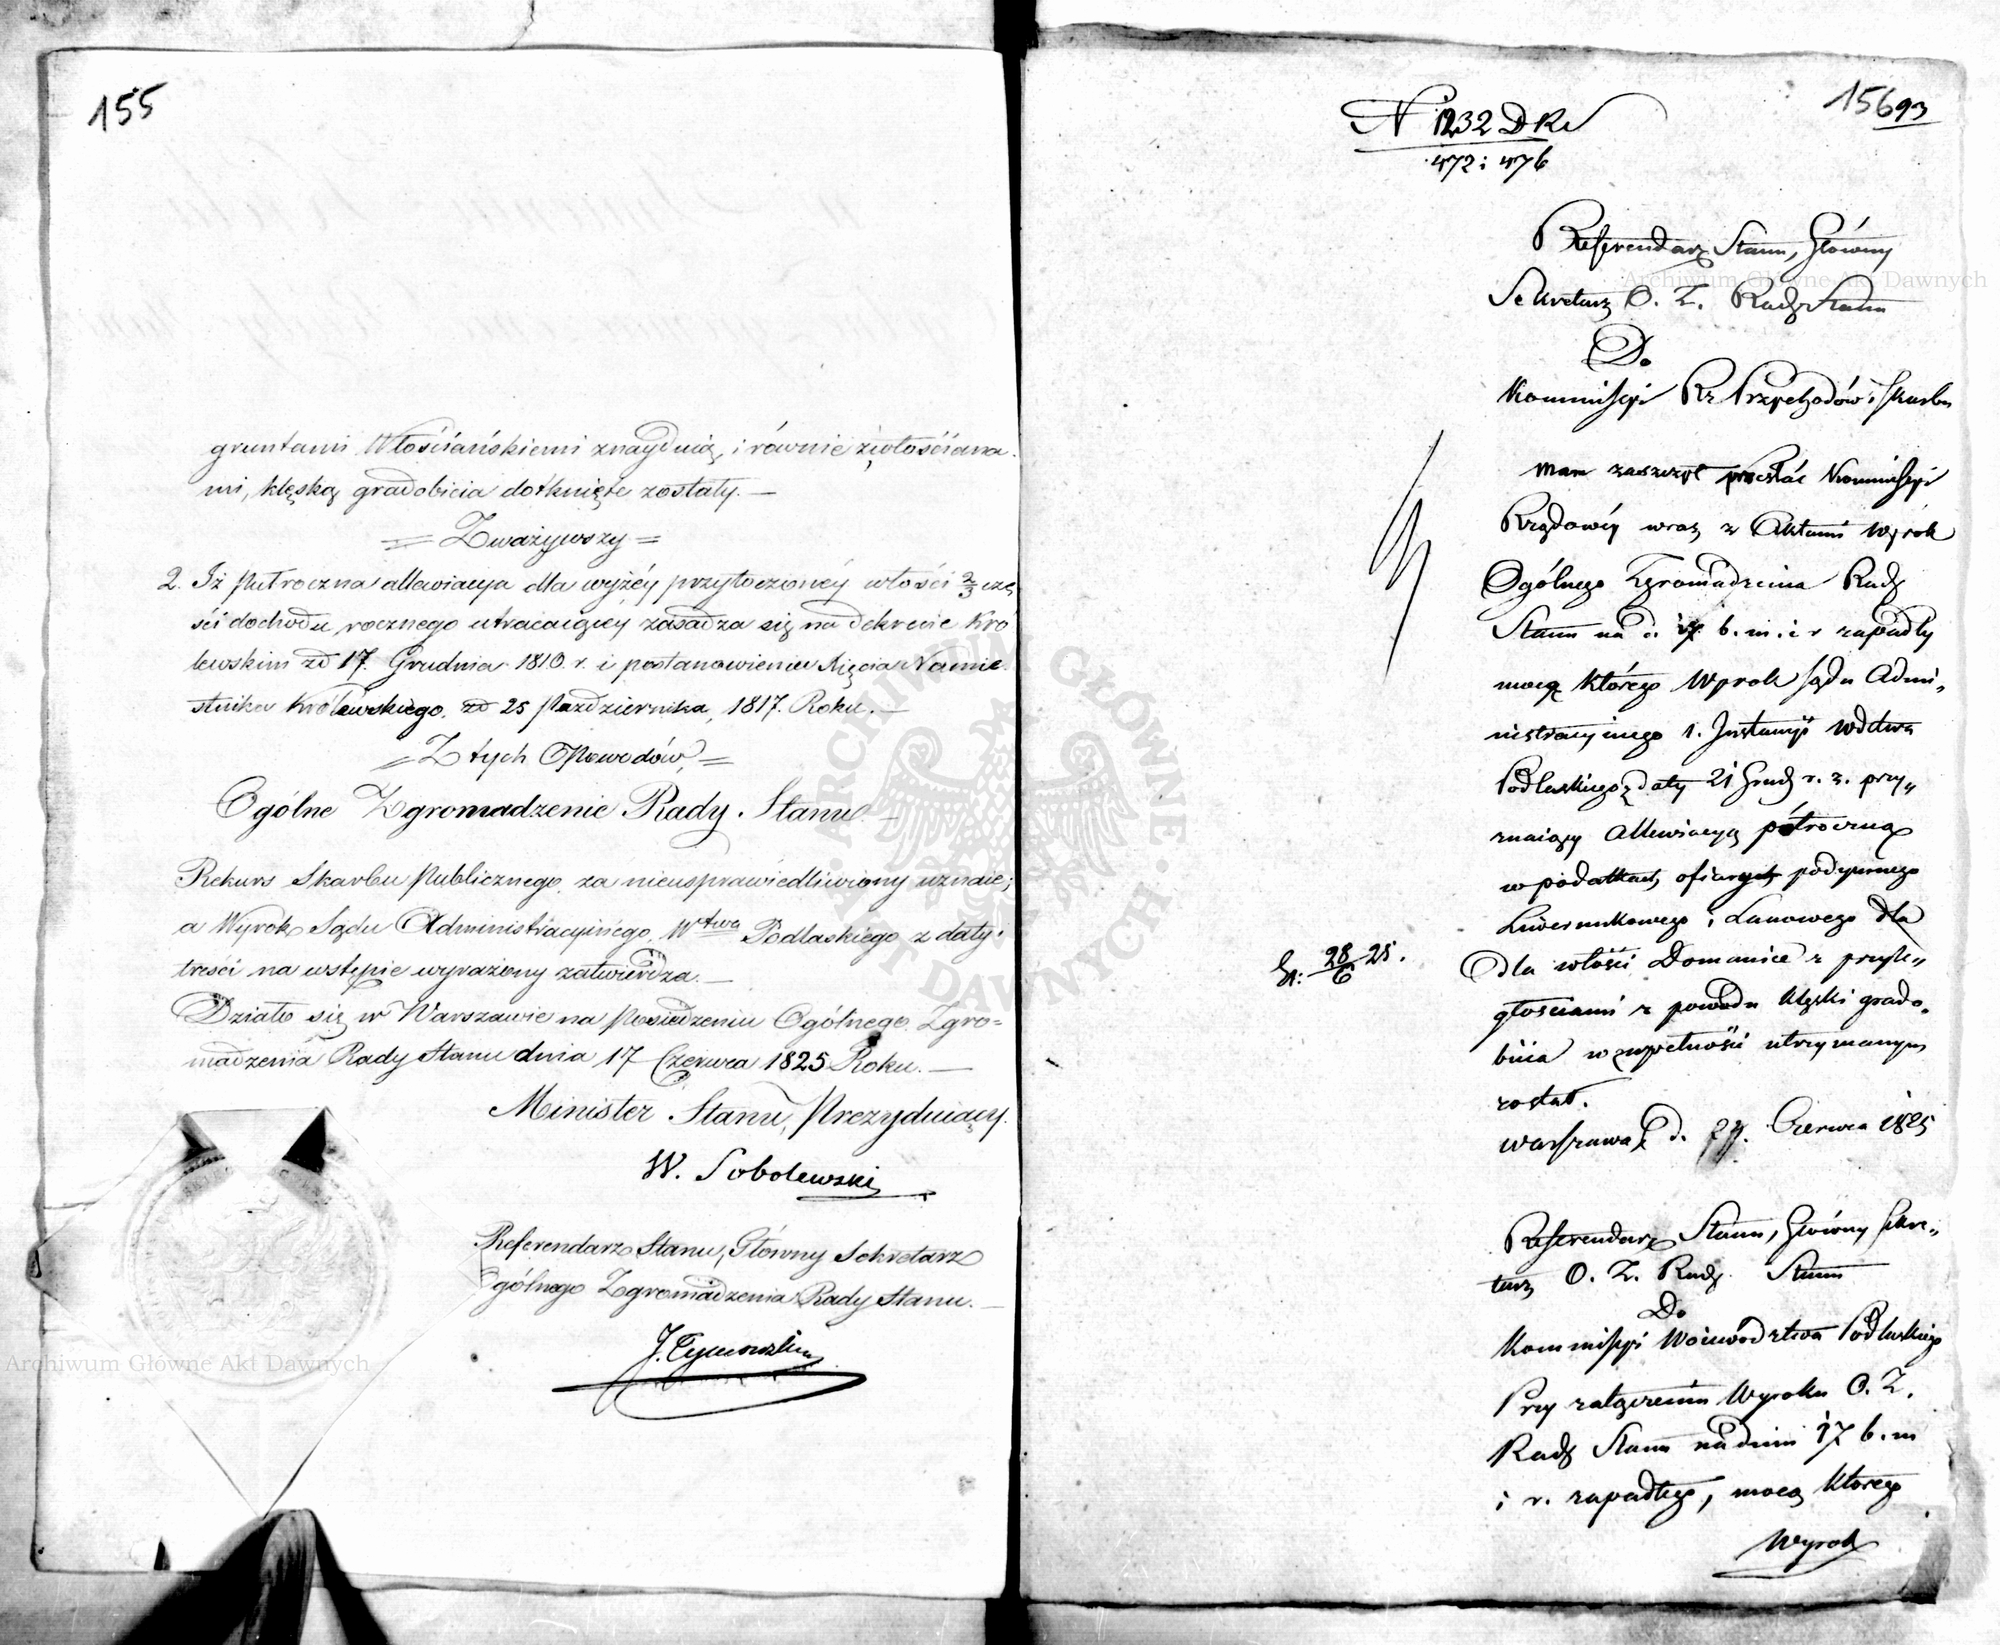 155
gruntami Włościańskiemi znayduią, i równie z włościana-
mi, klęską gradobicia dotknięte zostały. —
= Zważywszy =
2. Iż Półroczna allewiacya dla wyżéy przytoczonéy włości 2/3 czę
ści dochodu rocznego utracaiącéy zasadza się na dekrecie Kró
lewskim zd 17. Grudnia 1810. r. i postanowieniu Xięcia Namie-
stnika Królewskiego, zd 25 Października, 1817. Roku. —
= Z tych Powodów, =
Ogólne Zgromadzenie Rady Stanu. —
Rekurs Skarbu Publicznego, za nieusprawiedliwiony uznaie;
a Wyrok Sądu Administracyinégo, Wtwa Podlaskiego z daty i
treści na wstępie wyrażony zatwierdza. —
Działo się w Warszawie na Posiedzeniu Ogólnego Zgro=
madzenia Rady Stanu dnia 17 Czerwca 1825 Roku. —
Minister Stanu, Prezyduiący.
W. Sobolewski
Referendarz Stanu, Główny Sekretarz
Ogólnego Zgromadzenia Rady Stanu. —
J. Tymowski
156 93
N 1232 D R
472 : 476
Referendarz Stanu, Główny
Sekretarz O. Z. Rady Stanu
Do
Kommissyi Rz Przychodów i Skarbu
Mam zaszczyt przesłać Kommissyi
Rządowéy wraz z Aktami Wyrok
Ogólnego Zgromadzenia Rady
Stanu na d. 17 b. m. i r zapadły
mocą którego Wyrok Sądu Admi„
nistracyinego 1. Instancyi Wdztwa
Podlaskiego z daty 21 Grud r. z. przy„
znaiący Allewiacyą półroczną
w podatkach ofiary podymnego
Liwerunkowego i Łanowego
dla włości Domanice z przyle„
głościami z powodu klęski grado„
bicia w zupełności utrzymanym
został.
28/6 25.
Warszawa d. 27. Czerwca 1825
Referendarz Stanu, Główny Sekre„
tarz O. Z. Rady Stanu
Do
Kommissyi Woiewództwa Podlaskiego
Przy załączeniu Wyroku O. Z.
Rady Stanu na dniu 17 b. m
i r. zapadłego, mocą którego
Wyrok
Archiwum Główne Akt Dawnych
Archiwum Główne Akt Dawnych
ARCHIWUM GŁÓWNE · AKT DAWNYCH ·